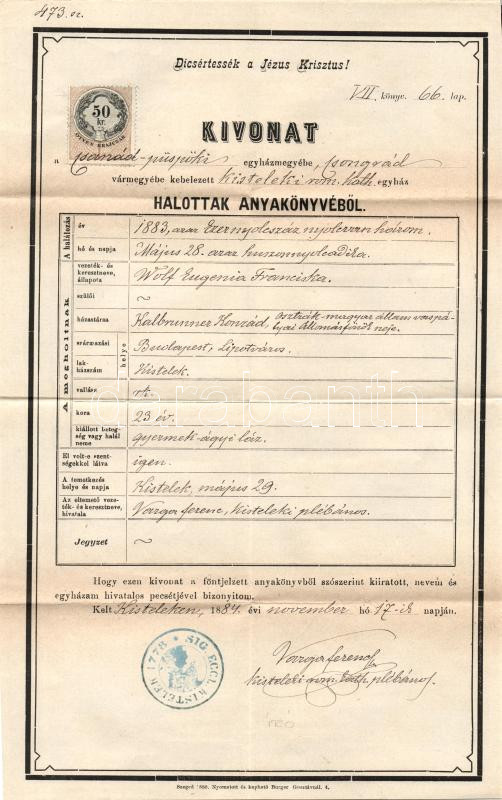 473. sz.
Dicsértessék a Jézus Krisztus!
VIII. könyv. 66. lap.
50
kr.
KIVONAT
a Csanád-püspöki egyházmegyébe, Csongrád
vármegyébe kebelezett kisteleki róm. kath. egyház
HALOTTAK ANYAKÖNYVÉBŐL.
A halálozás
év 1883, azaz Ezernyolcszáz nyolcvan három.
hó és napja Május 28. azaz huszonnyolcadika.
A megholtnak
vezeték- és keresztneve, állapota Wolf Eugenia Franciska.
szülői ~
házastársa Kalbrunner Konrád, osztrák-magyar állam vaspá-
lyai állomásfőnök neje.
származási helye Budapest, Lipótváros.
lak- házszám Kistelek.
vallása rk.
kora 23 év.
kiállott beteg-
ség vagy halál
neme gyermek-ágyi láz.
El volt-e szent-
ségekkel látva igen.
A temetkezés
helye és napja Kistelek, május 29.
Az eltemető veze-
ték- és keresztneve,
hivatala Varga ferenc, kisteleki plébános.
Jegyzet ~
darabanth
Hogy ezen kivonat a föntjelzett anyakönyvből szószerint kiiratott, nevem és
egyházam hivatalos pecsétjével bizonyitom.
Kelt Kisteleken, 1884. évi november hó 17-ik napján.
SIG. ECCL. KISTELEK 1778
Varga ferenc
kisteleki róm. kath. plébános.